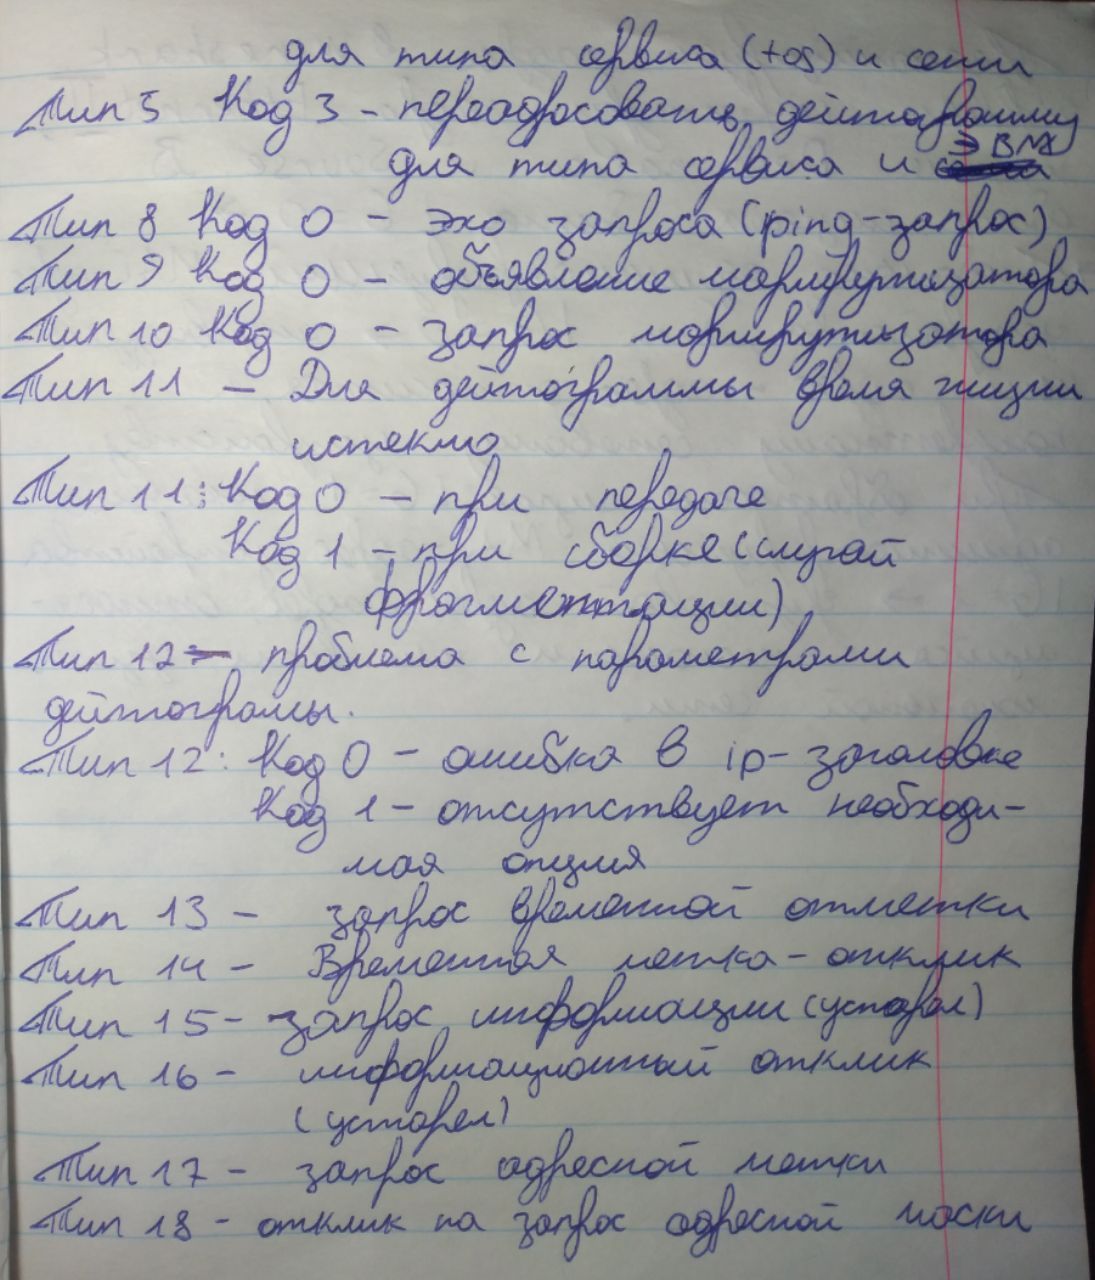 для типа сервиса (tos) и сети
Тип 5 Код 3 - переадресовать дейтаграмму
для типа сервиса и ЭВМ
Тип 8 Код 0 - эхо запроса (ping-запрос)
Тип 9 Код 0 - объявление маршрутизатора
Тип 10 Код 0 - запрос маршрутизатора
Тип 11 - Для дейтаграммы время жизни
истекло
Тип 11: Код 0 - при передаче
Код 1 - при сборке (случай
фрагментации)
Тип 12 - проблема с параметрами
дейтаграмы.
Тип 12: Код 0 - ошибка в ip-заголовке
Код 1 - отсутствует необходи-
мая опция
Тип 13 - запрос временной отметки
Тип 14 - Временная метка - отклик
Тип 15 - запрос информации (устарел)
Тип 16 - информационный отклик
(устарел)
Тип 17 - запрос адресной метки
Тип 18 - отклик на запрос адресной маски